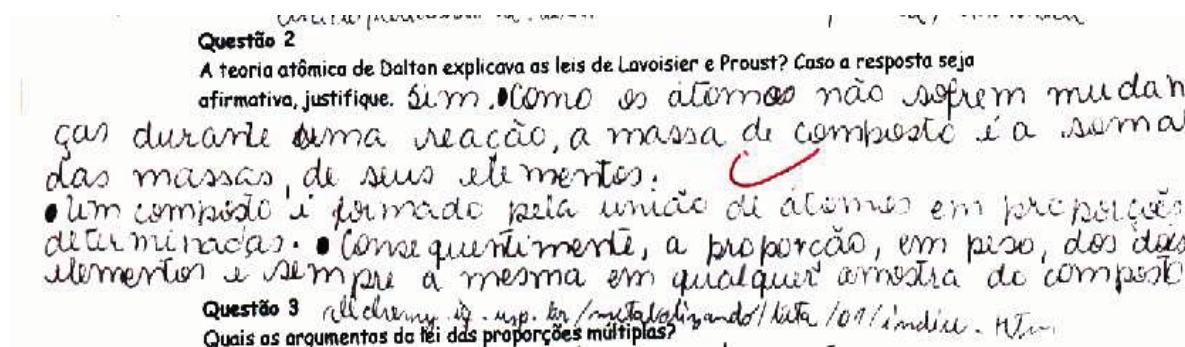 Questão 2
A teoria atômica de Dalton explicava as leis de Lavoisier e Proust? Caso a resposta seja
afirmativa, justifique. Sim. •Como os átomos não sofrem mudan
ças durante uma reação, a massa de composto é a soma
das massas, de seus elementos.
• Um composto é formado pela união de átomos em proporções
determinadas. • Consequentimente, a proporção, em peso, dos dois
elementos e sempre a mesma em qualquer amostra do composto
Questão 3 allchemy.iq.usp.br/metabolizando/beta/01/indice.htm
Quais os argumentos da lei das proporções múltiplas?